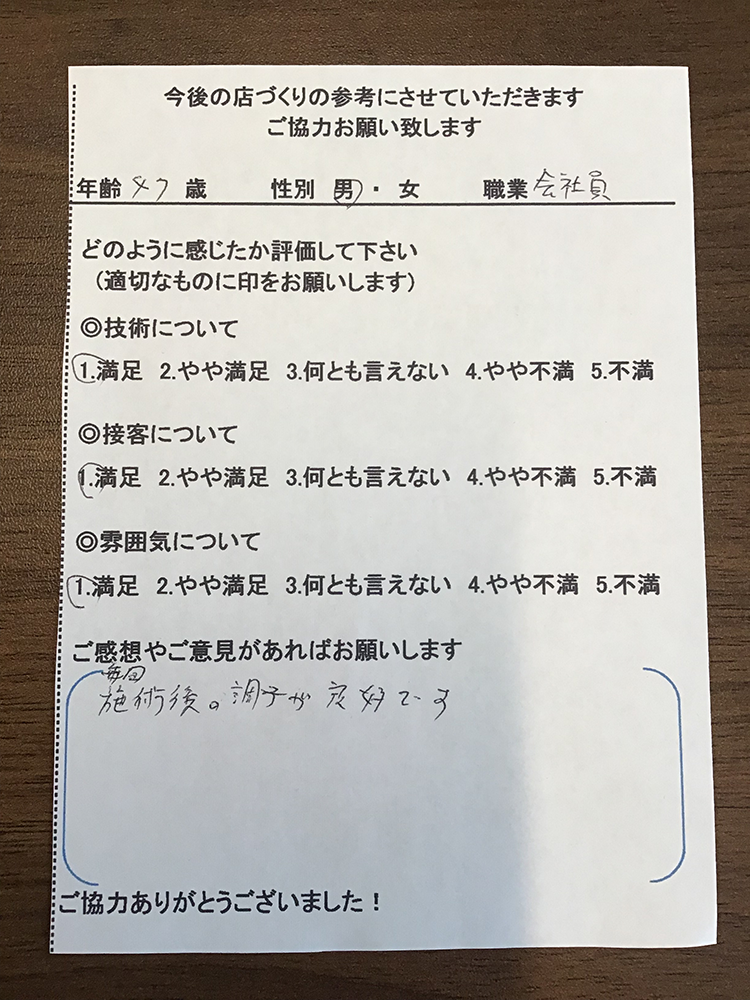 今後の店づくりの参考にさせていただきます
ご協力お願い致します
年齢 47 歳 性別 男・女 職業 会社員
どのように感じたか評価して下さい
（適切なものに印をお願いします）
◎技術について
1.満足 2.やや満足 3.何とも言えない 4.やや不満 5.不満
◎接客について
1.満足 2.やや満足 3.何とも言えない 4.やや不満 5.不満
◎雰囲気について
1.満足 2.やや満足 3.何とも言えない 4.やや不満 5.不満
ご感想やご意見があればお願いします
毎回
施術後の調子が良好です
ご協力ありがとうございました！